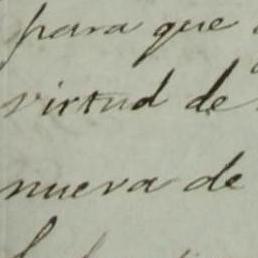 para que
virtud de
nueva de